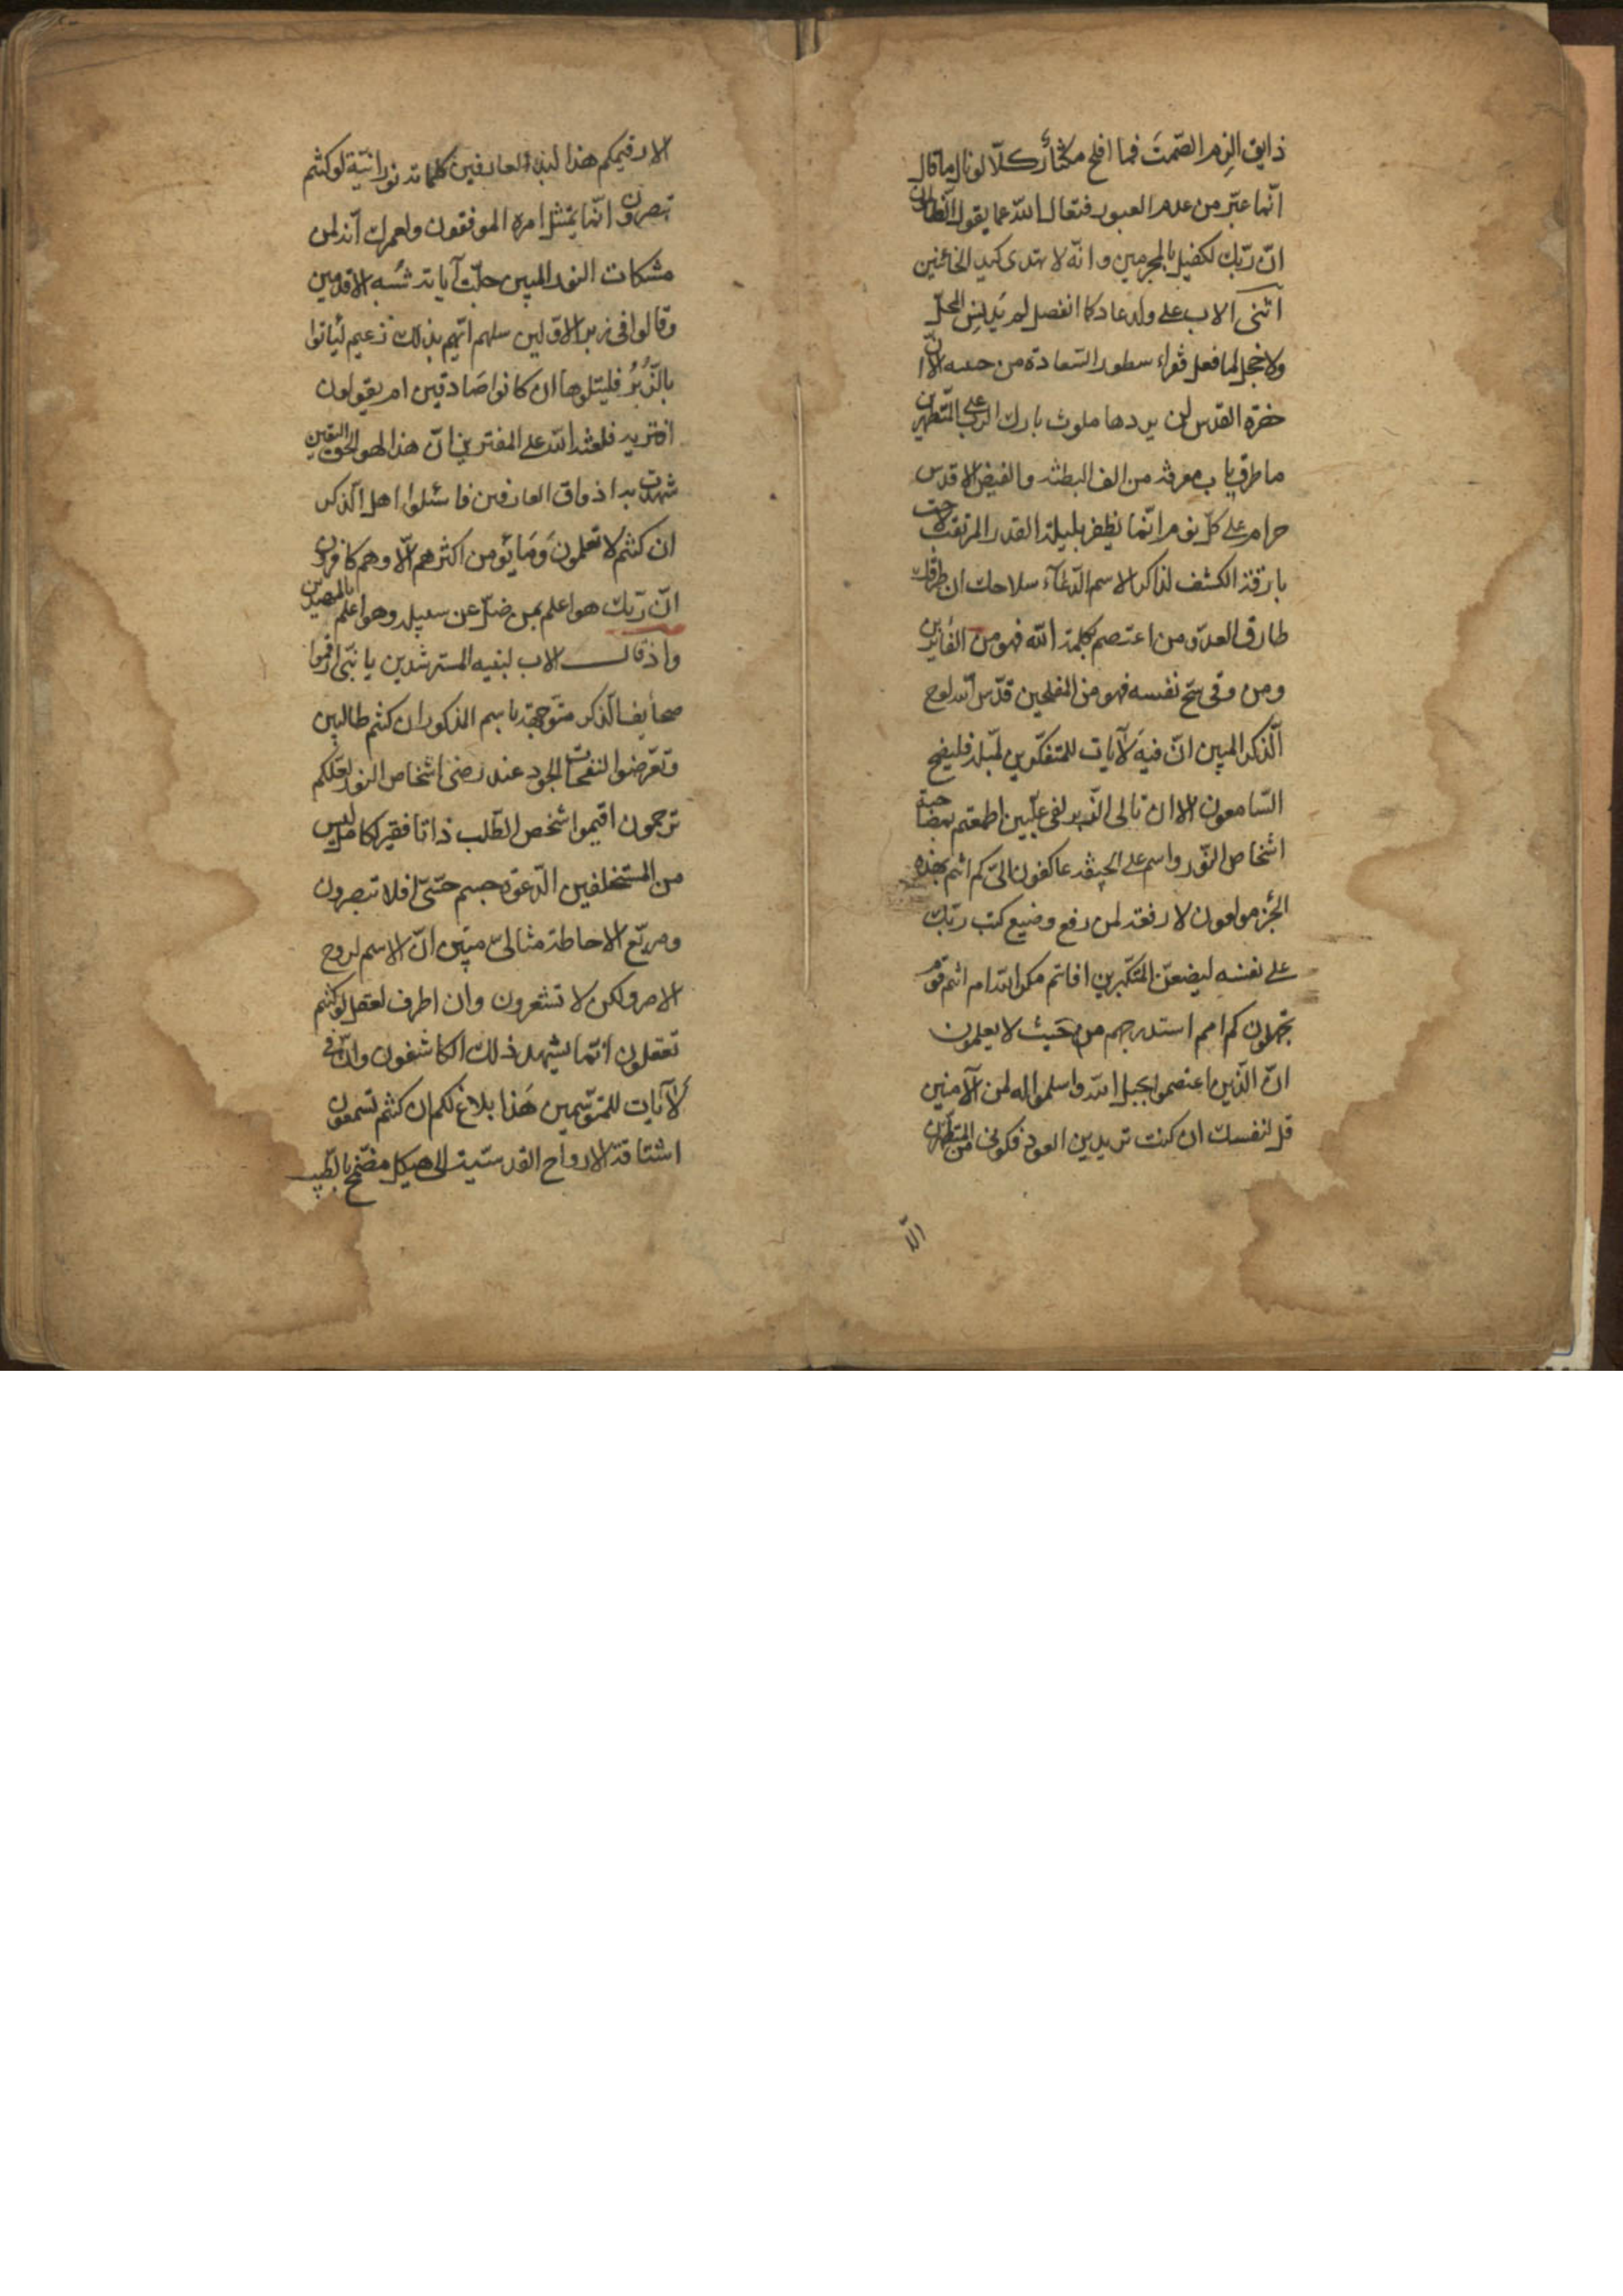 ذايق الزم الصمت فما افلح مكثار كلا لو نال ما قال
انما عبر من عدم العبور فتعالى الله عما يقول الظالمون
ان ربك لكفيل بالمجرمين وانه لا يهدى كيد الخائنين
اثنى الاب على ولد عاد كما انفصل لم يدنس المحل
ولا خجل لما فعل فقراء سطور السعادة من جبينه الا ان
خفرة القدس لن يردها ملوث بارك الرب على المتطهرين
ما طرق باب معرفة من الف البطنة والفيض الاقدس
حرام على كل نوم انما يظفر بليلة القدر المرتقب لاحت
بارقة الكشف لذاكر الاسم الدعاء سلاحك ان طرقك
طارق العدو ومن اعتصم بكلمة الله فهو من الفايزين
ومن وقى شح نفسه فهو من المفلحين قدس الله لوح
الذكر المبين ان فيه لآيات للمتفكرين
السامعون الا ان تالى الزبر لفى عليين اطمعتم بمصاحبة
اشخاص النور وانتم على الجيفة عاكفون الى كم انتم بهذه
مولعون لا رفعة لمن رفع وضيع كتب ربك
على نفسه ليضعن المتكبرين افامنتم مكر الله ام انتم قوم
تجهلون كم امم استدرجهم من حيث لا يعلمون
ان الذين اعتصموا بحبل الله واسلموا له لمن الآمنين
قل لنفسك ان كنت تريدين العود فكونى من المتطهرين
الا
الا رقيمكم هذا لبنة العارفين كلماته نورانية لو كنتم
تبصرون انما يمتثل امره الموفقون ولعمرك انه لمن
مشكات النور المبين جلت آياته شبه الاقدمين
وقالوا فى زبر الاولين سلهم ايهم بذلك زعيم ليأتوا
بالزبر فليتلوها ان كانوا صادقين ام يقولون
افتريه فلعنة الله على المفترين ان هذا لهو الحق اليقين
شهدت به اذواق العارفين فاسئلوا اهل الذكر
ان كنتم لا تعلمون وما يؤمن اكثرهم الا وهم كافرون
ان ربك هو اعلم بمن ضل عن سبيله وهو اعلم بالمهتدين
واذ قال الاب لبنيه المسترشدين يا بنى ارقموا
صحايف الذكر متوجهة باسم المذكور ان كنتم طالبين
وتعرضوا لنفحات الجود عند رضى اشخاص النور لعلكم
ترحمون اقيموا شخص الطلب ذاتا فقير كامل ليس
من المستخلفين الدعوة جسم حى افلا تبصرون
ومربع الاحاطة مثالى مبين ان الاسم لروح
الامر ولكن لا تشعرون وان اطرف لعقل لو كنتم
تعقلون انما يشهد ذلك الكاشفون وان فى
لآيات للمتوسمين هذا بلاغ لكم ان كنتم تسمعون
اشتاقة الارواح القدسية الى هيكل مضمخ بالطيب